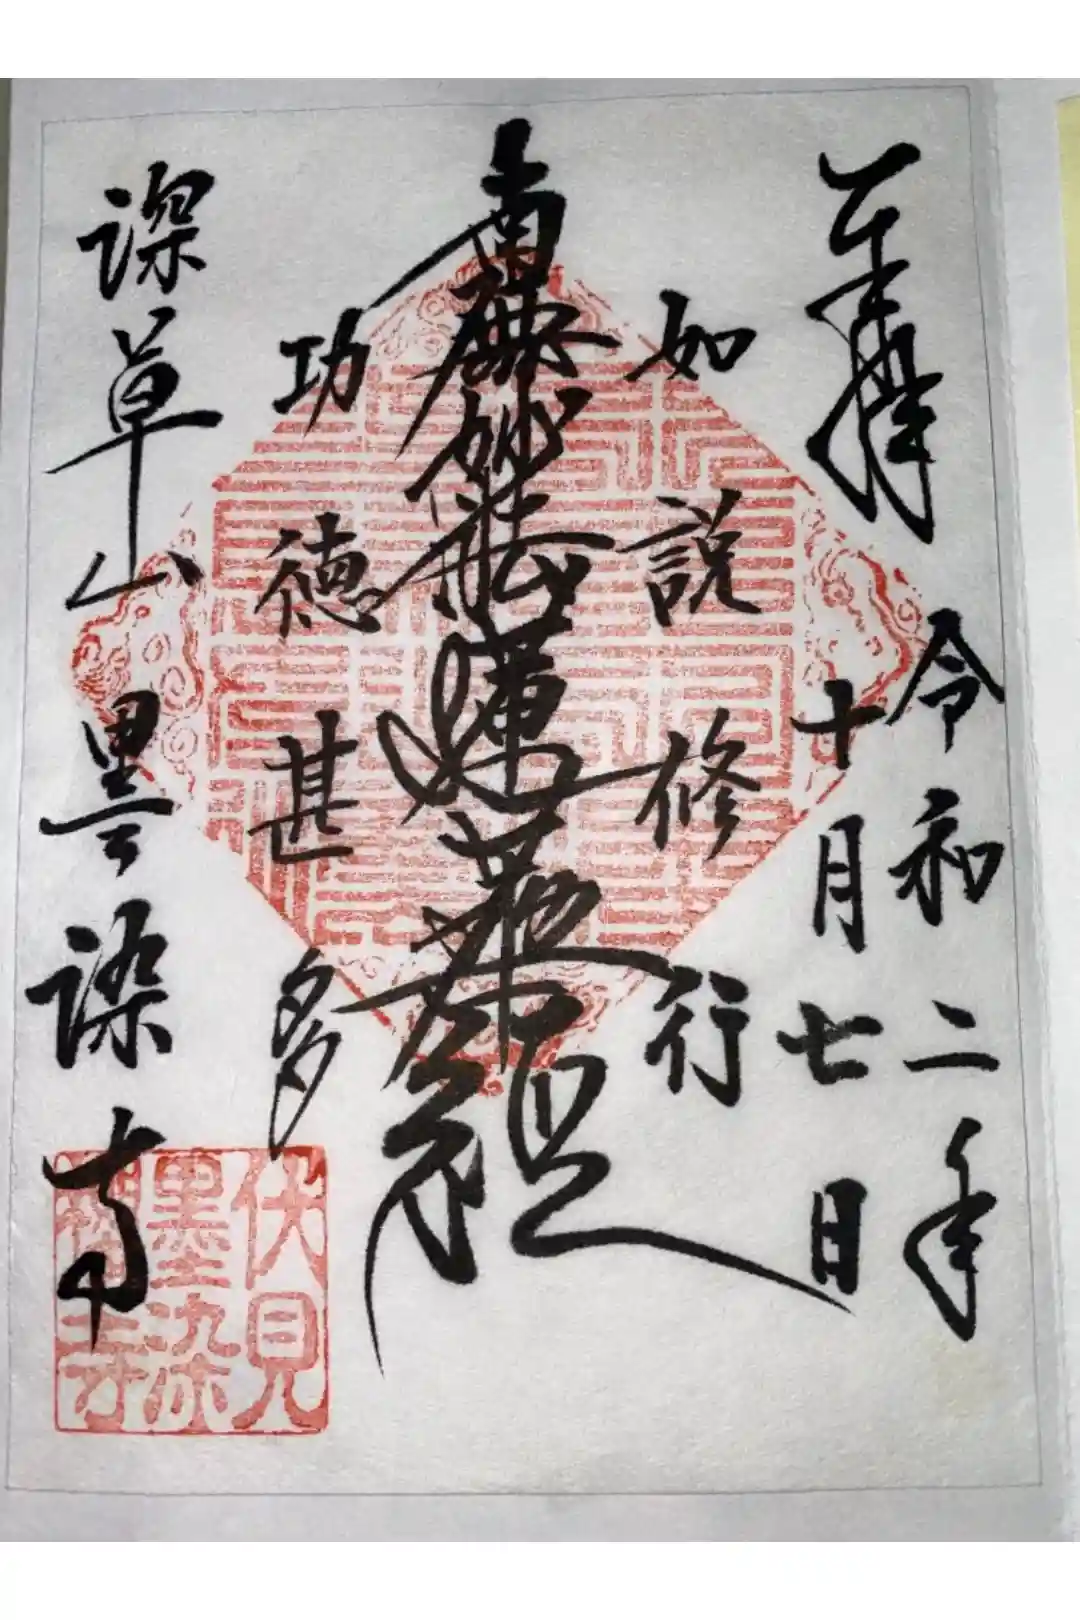 奉拝
令和二年
十月七日
如説修行
南無妙法蓮華経
功徳甚多
深草山墨染寺
伏見
墨染
櫻寺